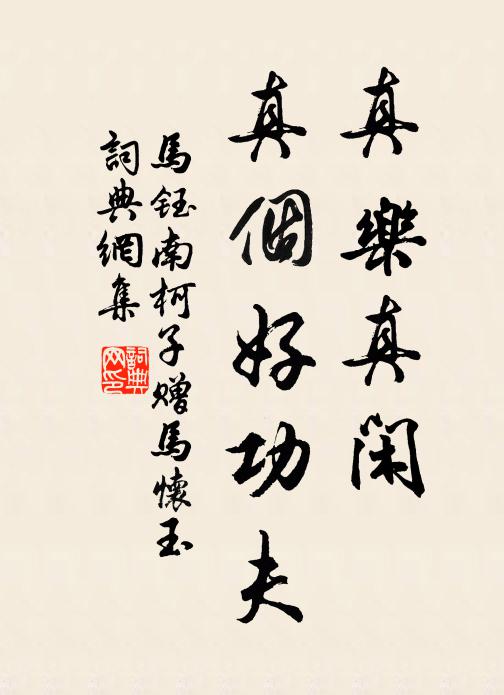 真樂真闲
真個好功夫
馬鈺南柯子贈馬懷玉
詞典網集
詞典网印